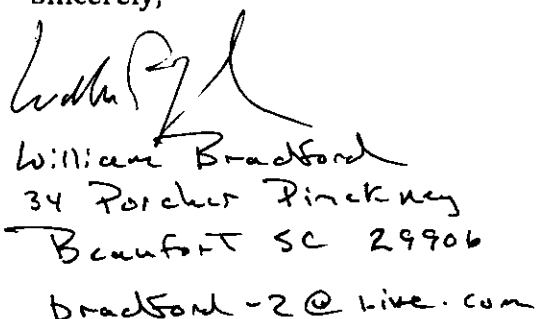 Sincerely,
William Bradford
34 Porcher Pinckney
Beaufort SC 29906
bradford-2@live.com